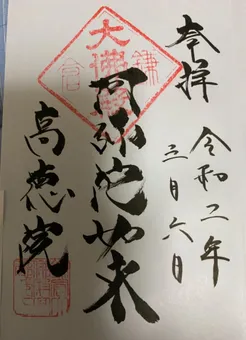 奉拝
令和二年
三月六日
大佛殿
鎌
倉
阿弥陀如来
高徳院